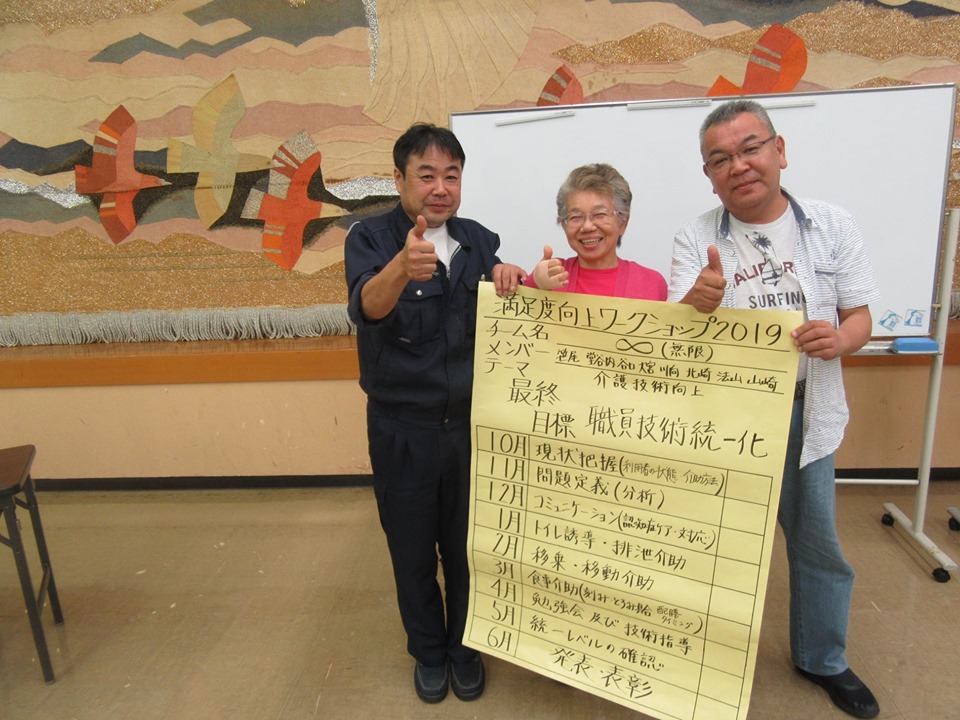 満足度向上ワークショップ2019
チーム名 ∞(無限)
メンバー 笹尾 堂谷内 谷口 大宮 川向 北崎 法山 山崎
テーマ 介護技術向上
最終
目標 職員技術統一化
10月 現状把握(利用者の状態 介助方法)
11月 問題定義(分析)
12月 コミュニケーション(認知症ケア・対応)
1月 トイレ誘導・排泄介助
2月 移乗・移動介助
3月 食事介助(刻み・とろみ 配膳 タイミング)
4月 勉強会及び技術指導
5月 統一レベルの確認
6月 発表・表彰
CALIFOR
SURFING